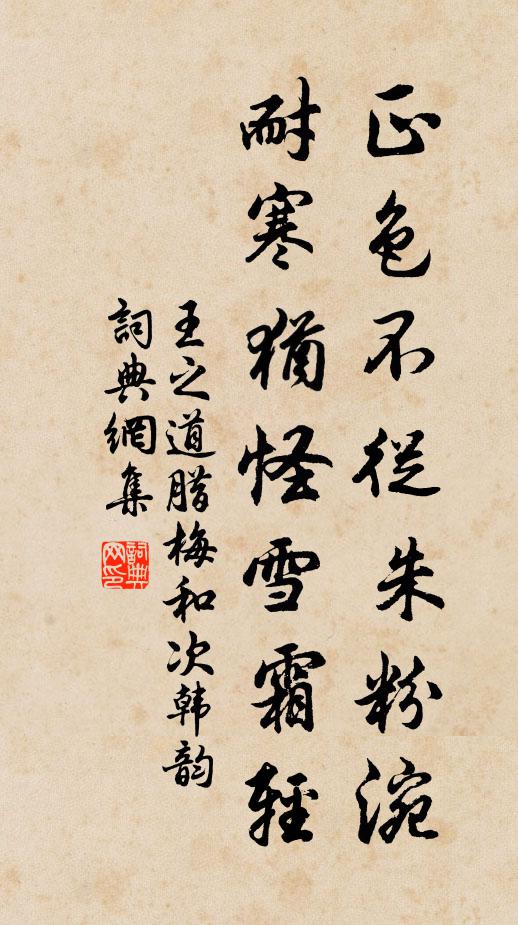 正色不從朱粉涴
耐寒猶怪雪霜輕
王之道腊梅和次韩韵
詞典網集
詞典网印